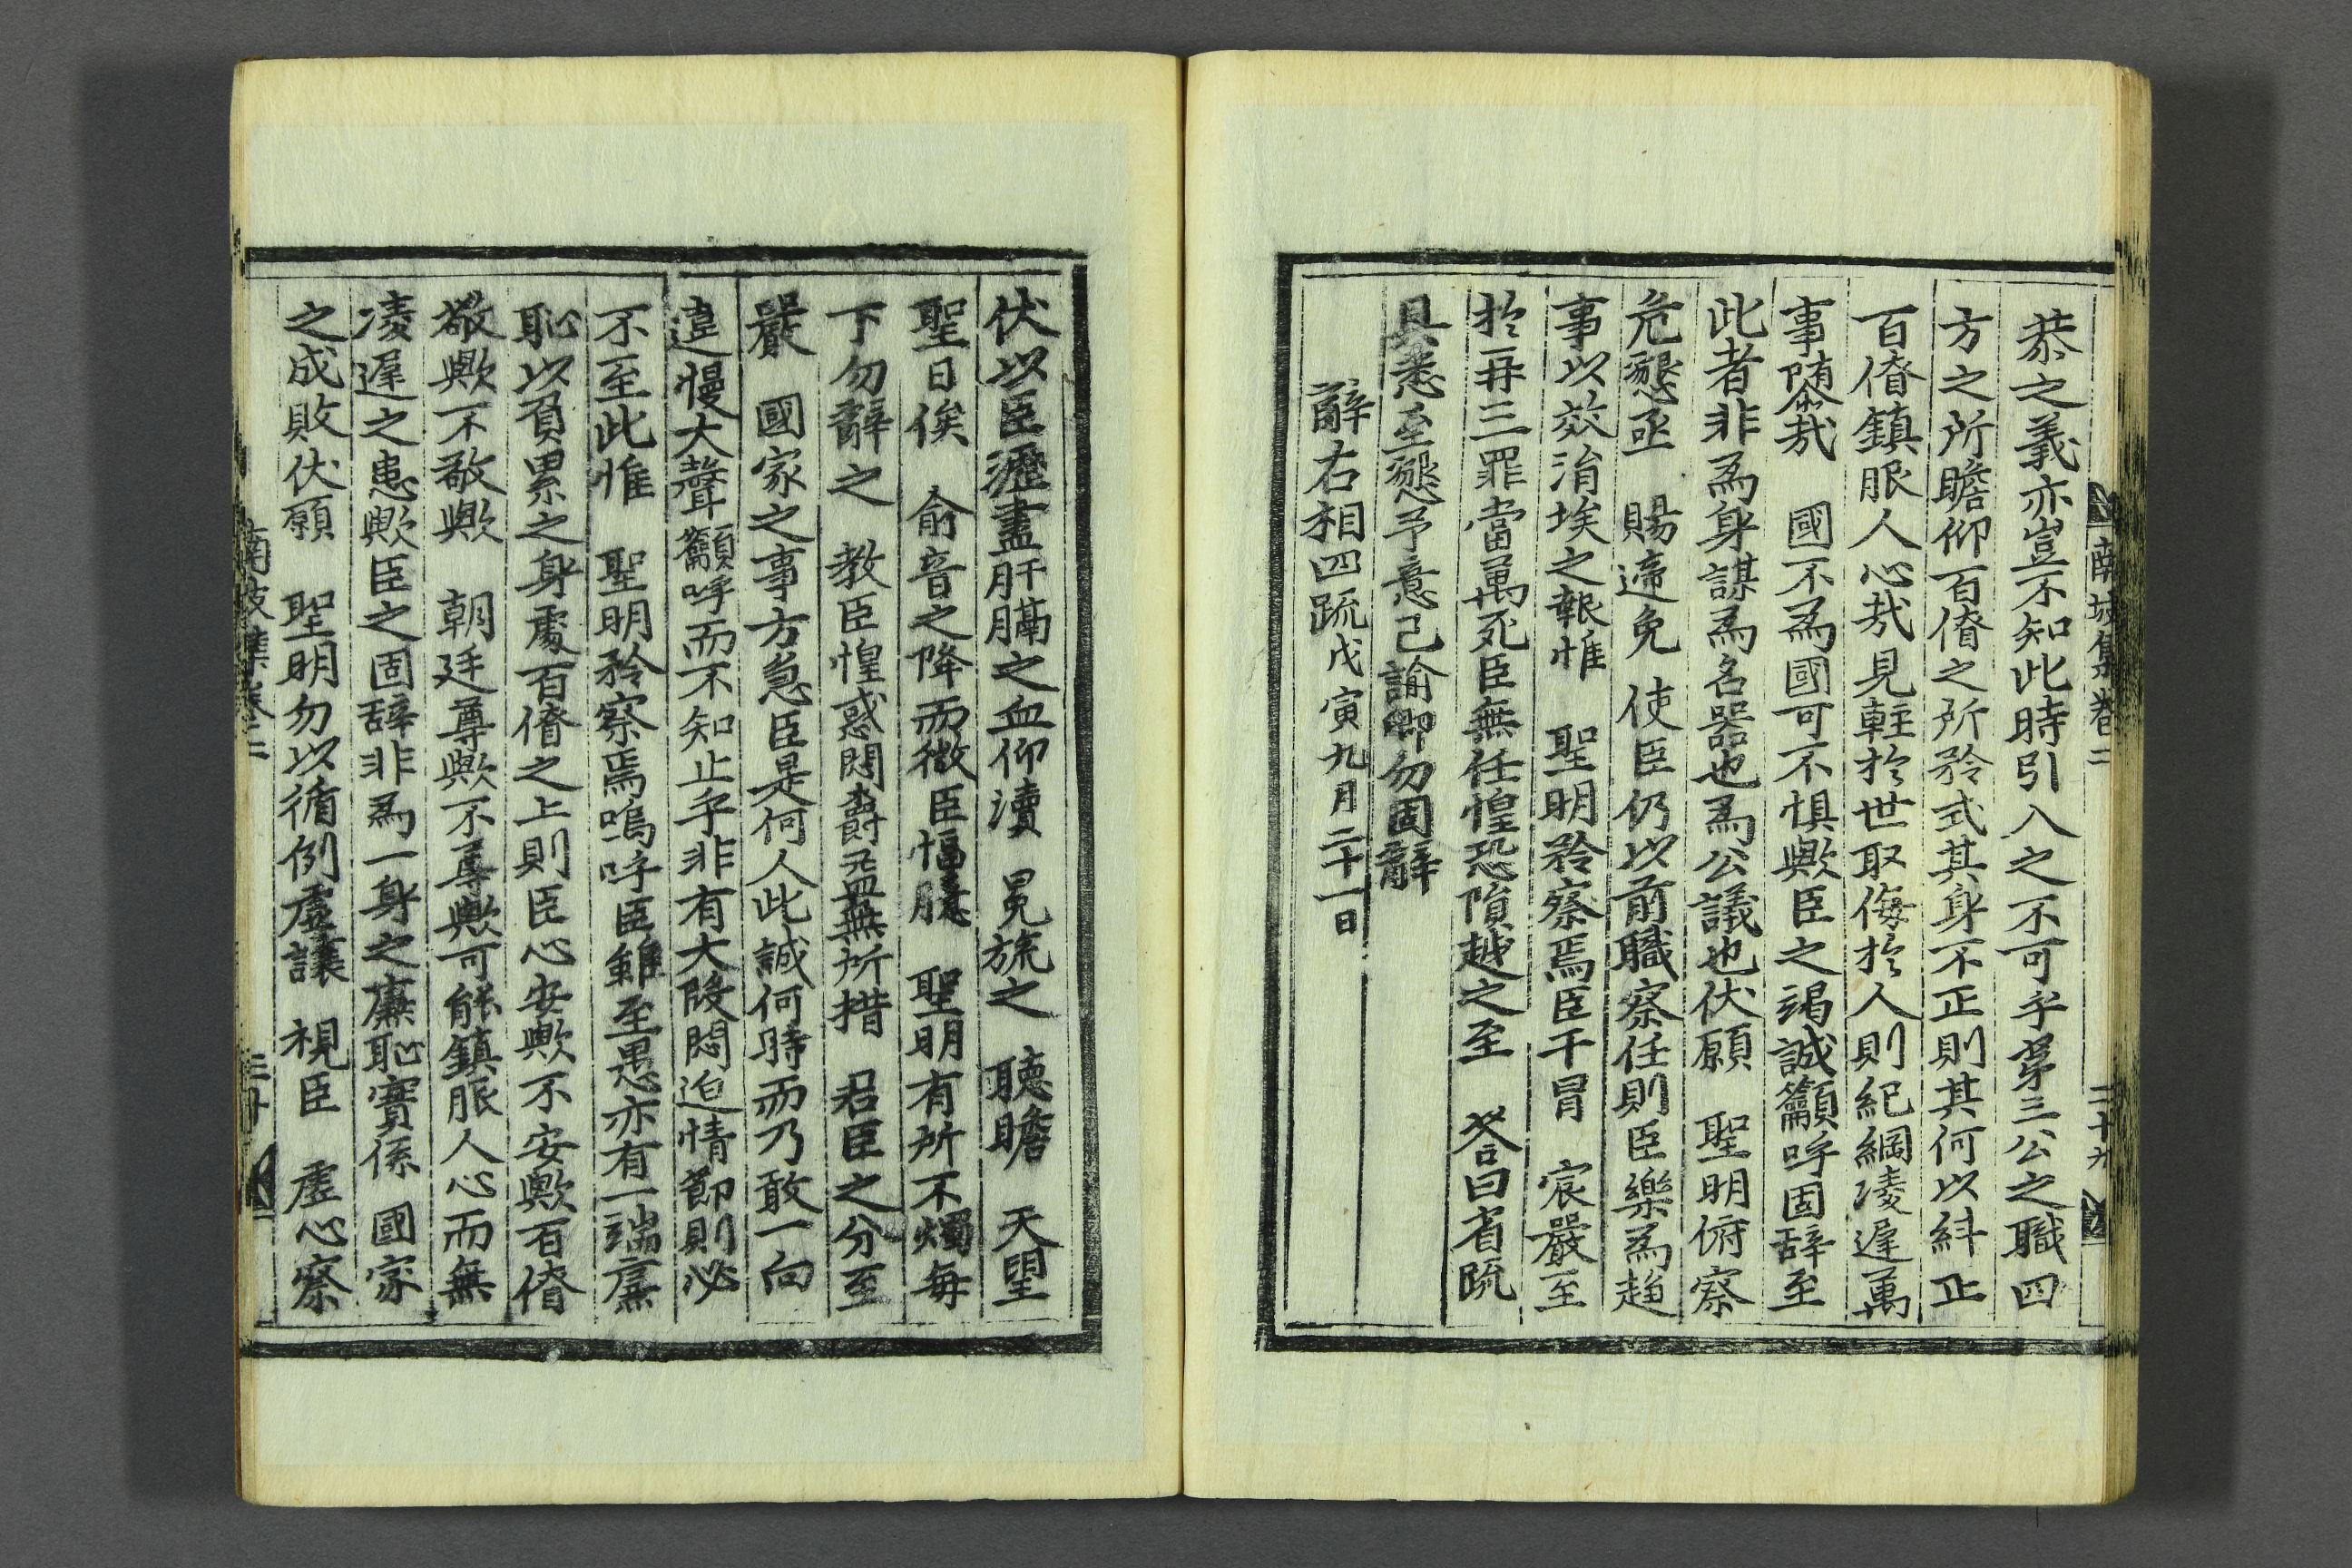 南坡集卷二
二十九
恭之義亦豈不知此時引入之不可乎第三公之職四
方之所瞻仰百僚之所矜式其身不正則其何以糾正
百僚鎮服人心哉見輕於世取侮於人則紀綱凌遲萬
事隳哉 國不爲國可不惧歟臣之竭誠籲呼固辞至
此者非爲身謀爲名器也爲公議也伏願 聖明俯察
危懇亟 賜遞免 使臣仍以前職察任則臣樂爲趨
事以效涓埃之報惟 聖明矜察焉臣干冒 宸嚴至
於再三罪當萬死臣無任惶恐隕越之至 答曰省疏
具悉至懇予意已諭卿勿固辭
辭右相四疏戊寅九月二十一日
伏以臣瀝盡肝膈之血仰瀆 冕旒之 聽瞻 天望
聖日俟 俞音之降而微臣愊臆 聖明有所不燭每
下勿辭之 教臣惶惑悶欝益無所措 君臣之分至
嚴 國家之事方急臣是何人此誠何時而乃敢一向
違慢大聲籲呼而不知止乎非有大段悶迫情節則必
不至此惟 聖明矜察焉嗚呼臣雖至愚亦有一端廉
恥以負累之身處百僚之上則臣心安歟不安歟百僚
敬歟不敬歟 朝廷尊歟不尊歟可能鎮服人心而無
凌遲之患歟臣之固辞非爲一身之廉恥實係 國家
之成敗伏願 聖明勿以循例虛讓 視臣 虛心察
南坡集卷二
三十